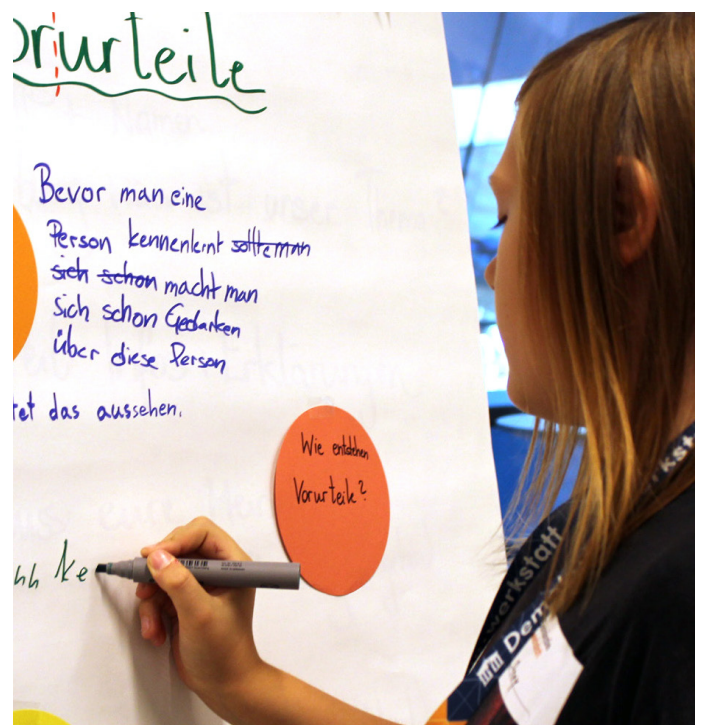 orurteile
Bevor man eine
Person kennenlernt sollte man
sich schon macht man
sich schon Gedanken
über diese Person
tet das aussehen.
Wie entstehen
Vorurteile?
hh ke
werkstatt
Dem
rkst